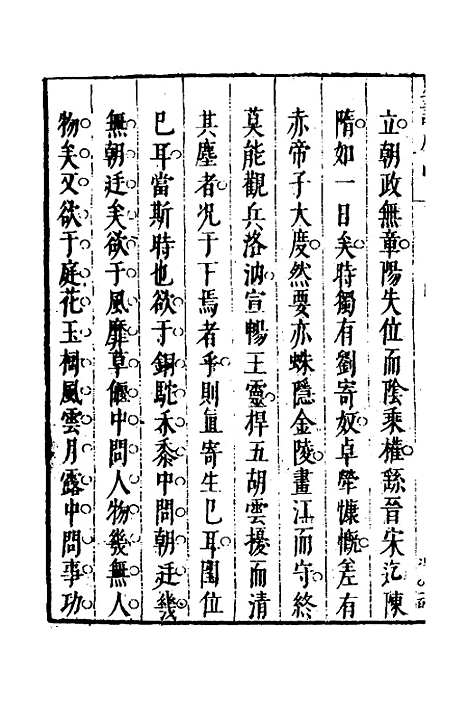 立朝政無章陽失位而陰乘權繇晉宋迄陳
隋如一日矣時獨有劉寄奴卓犖慷慨差有
赤帝子大度然要亦蛛隱金陵畫江而守終
莫能觀兵洛汭宣暢王靈捍五胡雲擾而清
其塵者况于下焉者乎則直寄生已耳閏位
已耳當斯時也欲于銅駝禾黍中問朝廷幾
無朝廷矣欲于風靡草偃中問人物幾無人
物矣又欲于庭花玉樹風雲月露中問事功